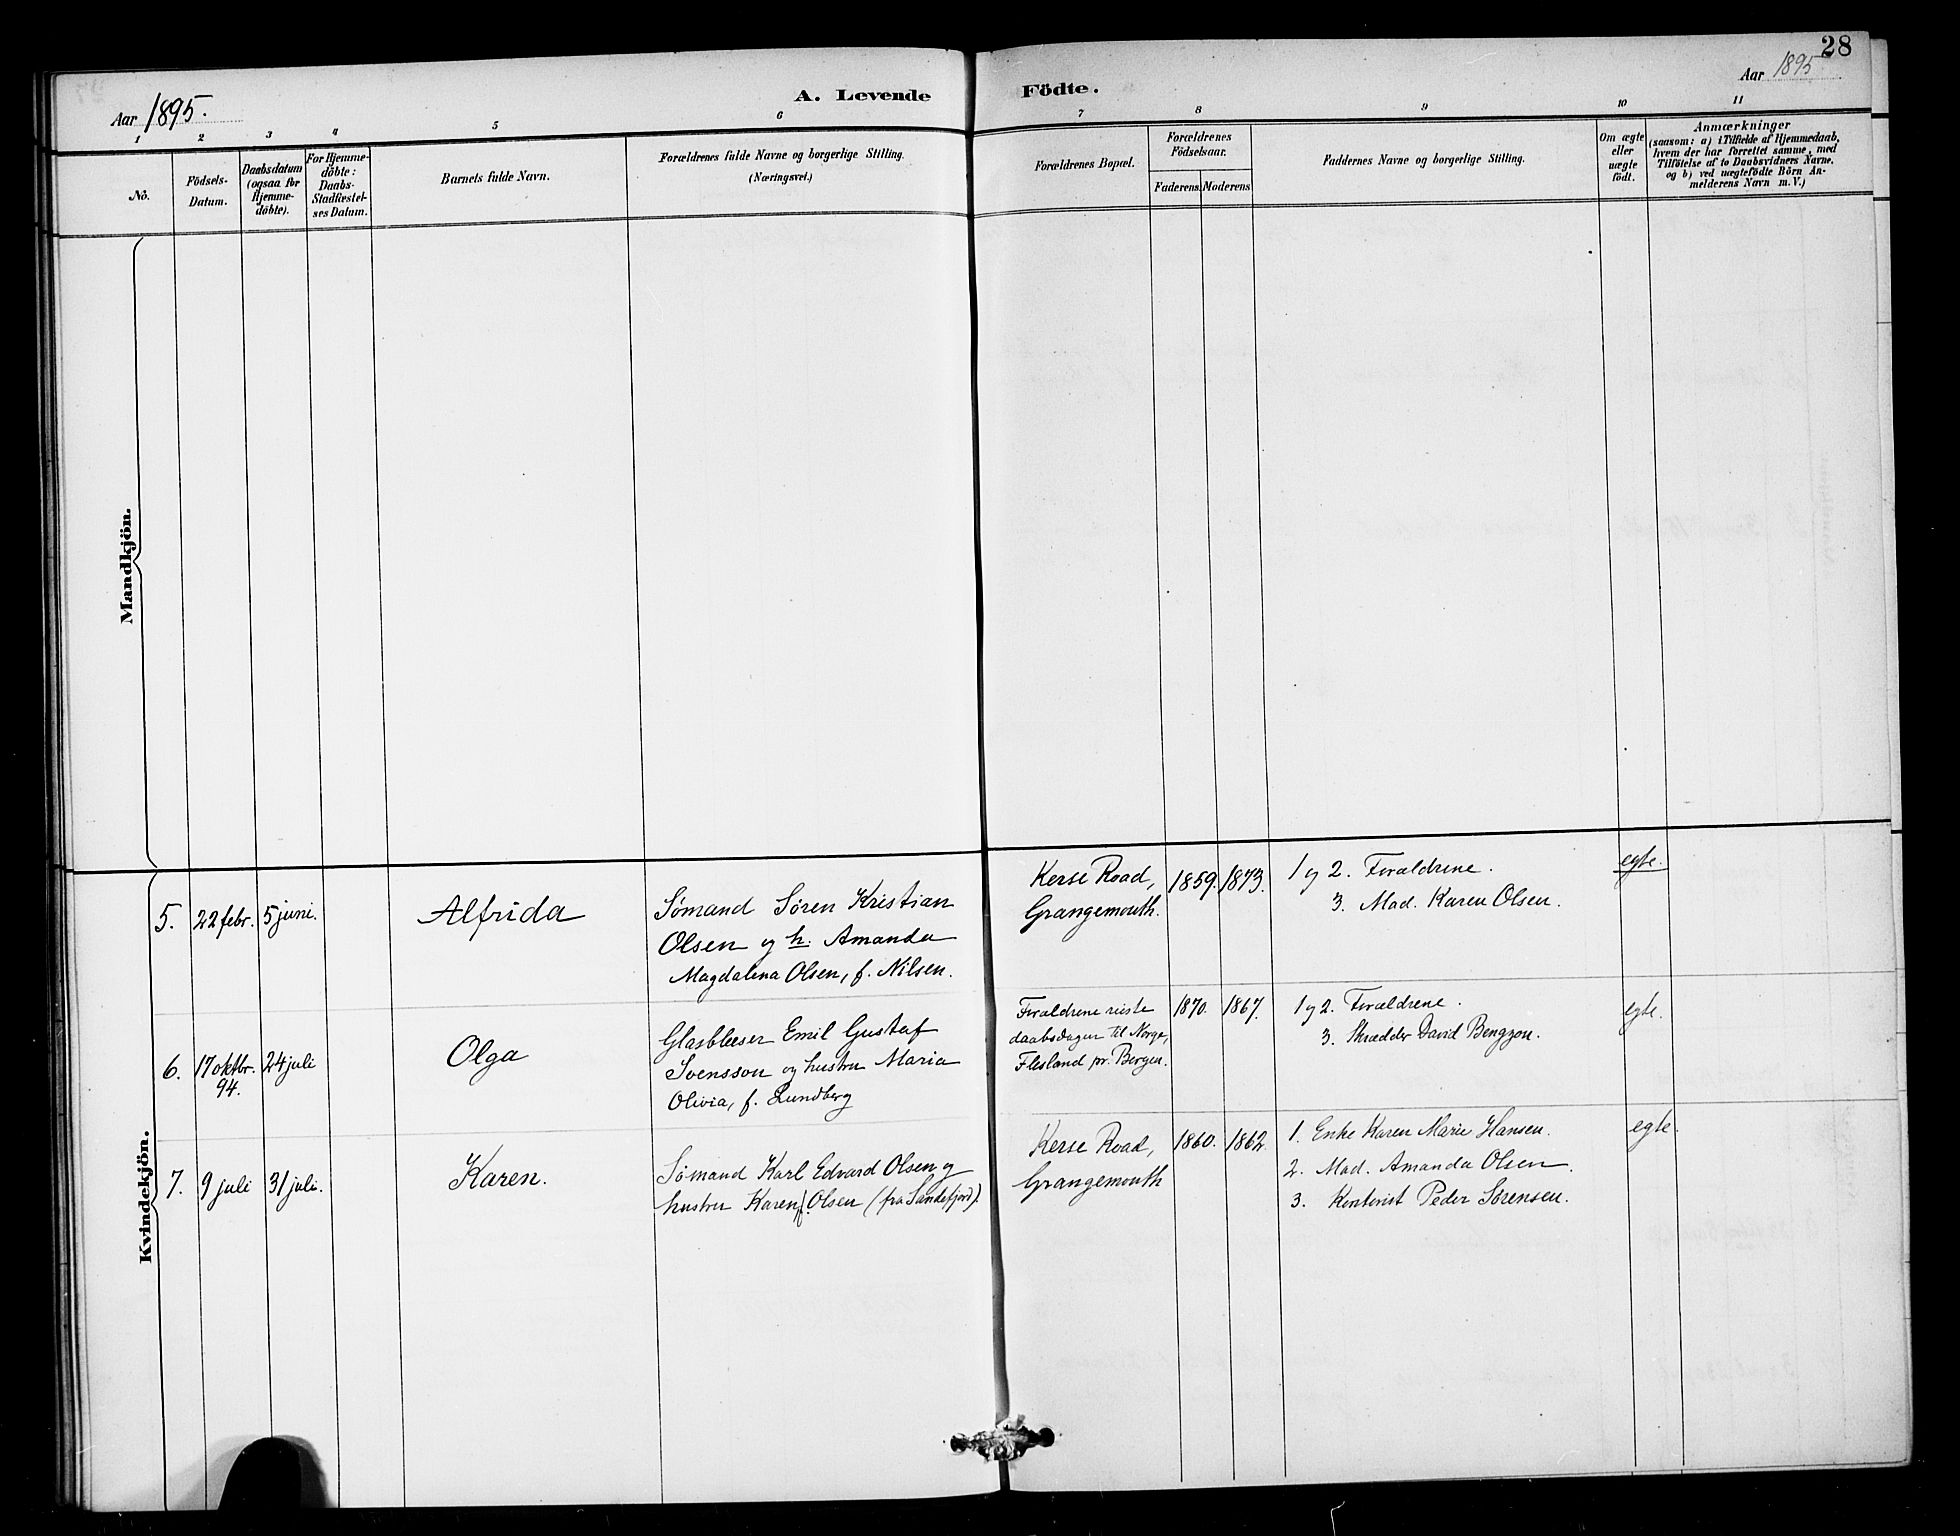 28
Aar 1895.
A. Levende Födte.
Aar 1895
1 2 3 4 5 6 7 8 9 10 11
Nö.
Födsels-
Datum.
Daabsdatum
(ogsaa for
Hjemme-
döbte).
For Hjemme-
döbte:
Daabs-
Stadfæstel-
ses Datum.
Barnets fulde Navn.
Forældrenes fulde Navne og borgerlige Stilling.
(Næringsvei.)
Forældrenes Bopæl.
Forældrenes
Födselsaar.
Faderens. Moderens.
Faddernes Navne og borgerlige Stilling.
Om ægte
eller
uægte
födt.
Anmærkninger
(saasom: a) i Tilfælde af Hjemmedaab,
hvem der har forrettet samme, med
Tilföielse af to Daabsvidners Navne.
og b) ved uægtefödte Börn An-
melderens Navn m. V.)
Mandkjön.
Kvindekjön.
5. 22 febr. 5 juni. Alfrida
Sømand Søren Kristian
Olsen og h. Amanda
Magdalena Olsen, f. Nilsen.
Kerse Road,
Grangemouth.
1859. 1873.
1 og 2. Forældrene.
3. Mad. Karen Olsen.
egte.
6. 17 oktbr.
94.
24 juli
Olga
Glasblæser Emil Gustaf
Svensson og hustru Maria
Olivia, f. Lundberg
Forældrene reiste
daabsdagen til Norge,
Flesland pr. Bergen.
1870. 1867.
1 og 2. Forældrene.
3. Skrædder David Bengzon.
egte.
7. 9 juli 31 juli. Karen.
Sømand Karl Edvard Olsen og
hustru Karen f. Olsen (fra Sandefjord).
Kerse Road,
Grangemouth
1860. 1862.
1. Enke Karen Marie Hansen.
2. Mad. Amanda Olsen.
3. Kontorist Peder Sørensen.
egte.